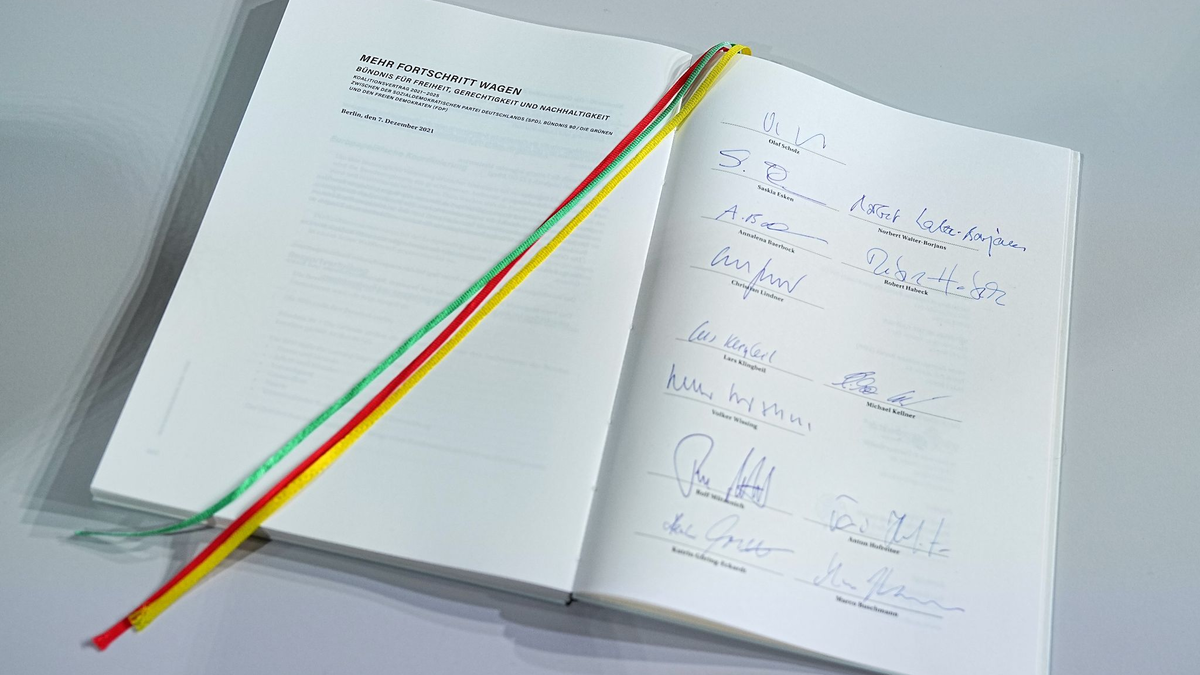 MEHR FORTSCHRITT WAGEN
BÜNDNIS FÜR FREIHEIT, GERECHTIGKEIT UND NACHHALTIGKEIT
KOALITIONSVERTRAG 2021–2025
ZWISCHEN DER SOZIALDEMOKRATISCHEN PARTEI DEUTSCHLANDS (SPD), BÜNDNIS 90 / DIE GRÜNEN
UND DEN FREIEN DEMOKRATEN (FDP)
Berlin, den 7. Dezember 2021
Olaf Scholz
Saskia Esken
Norbert Walter-Borjans
Norbert Walter-Borjans
Annalena Baerbock
Robert Habeck
Christian Lindner
Lars Klingbeil
Lars Klingbeil
Michael Kellner
Volker Wissing
Rolf Mützenich
Anton Hofreiter
Katrin Göring-Eckardt
Marco Buschmann